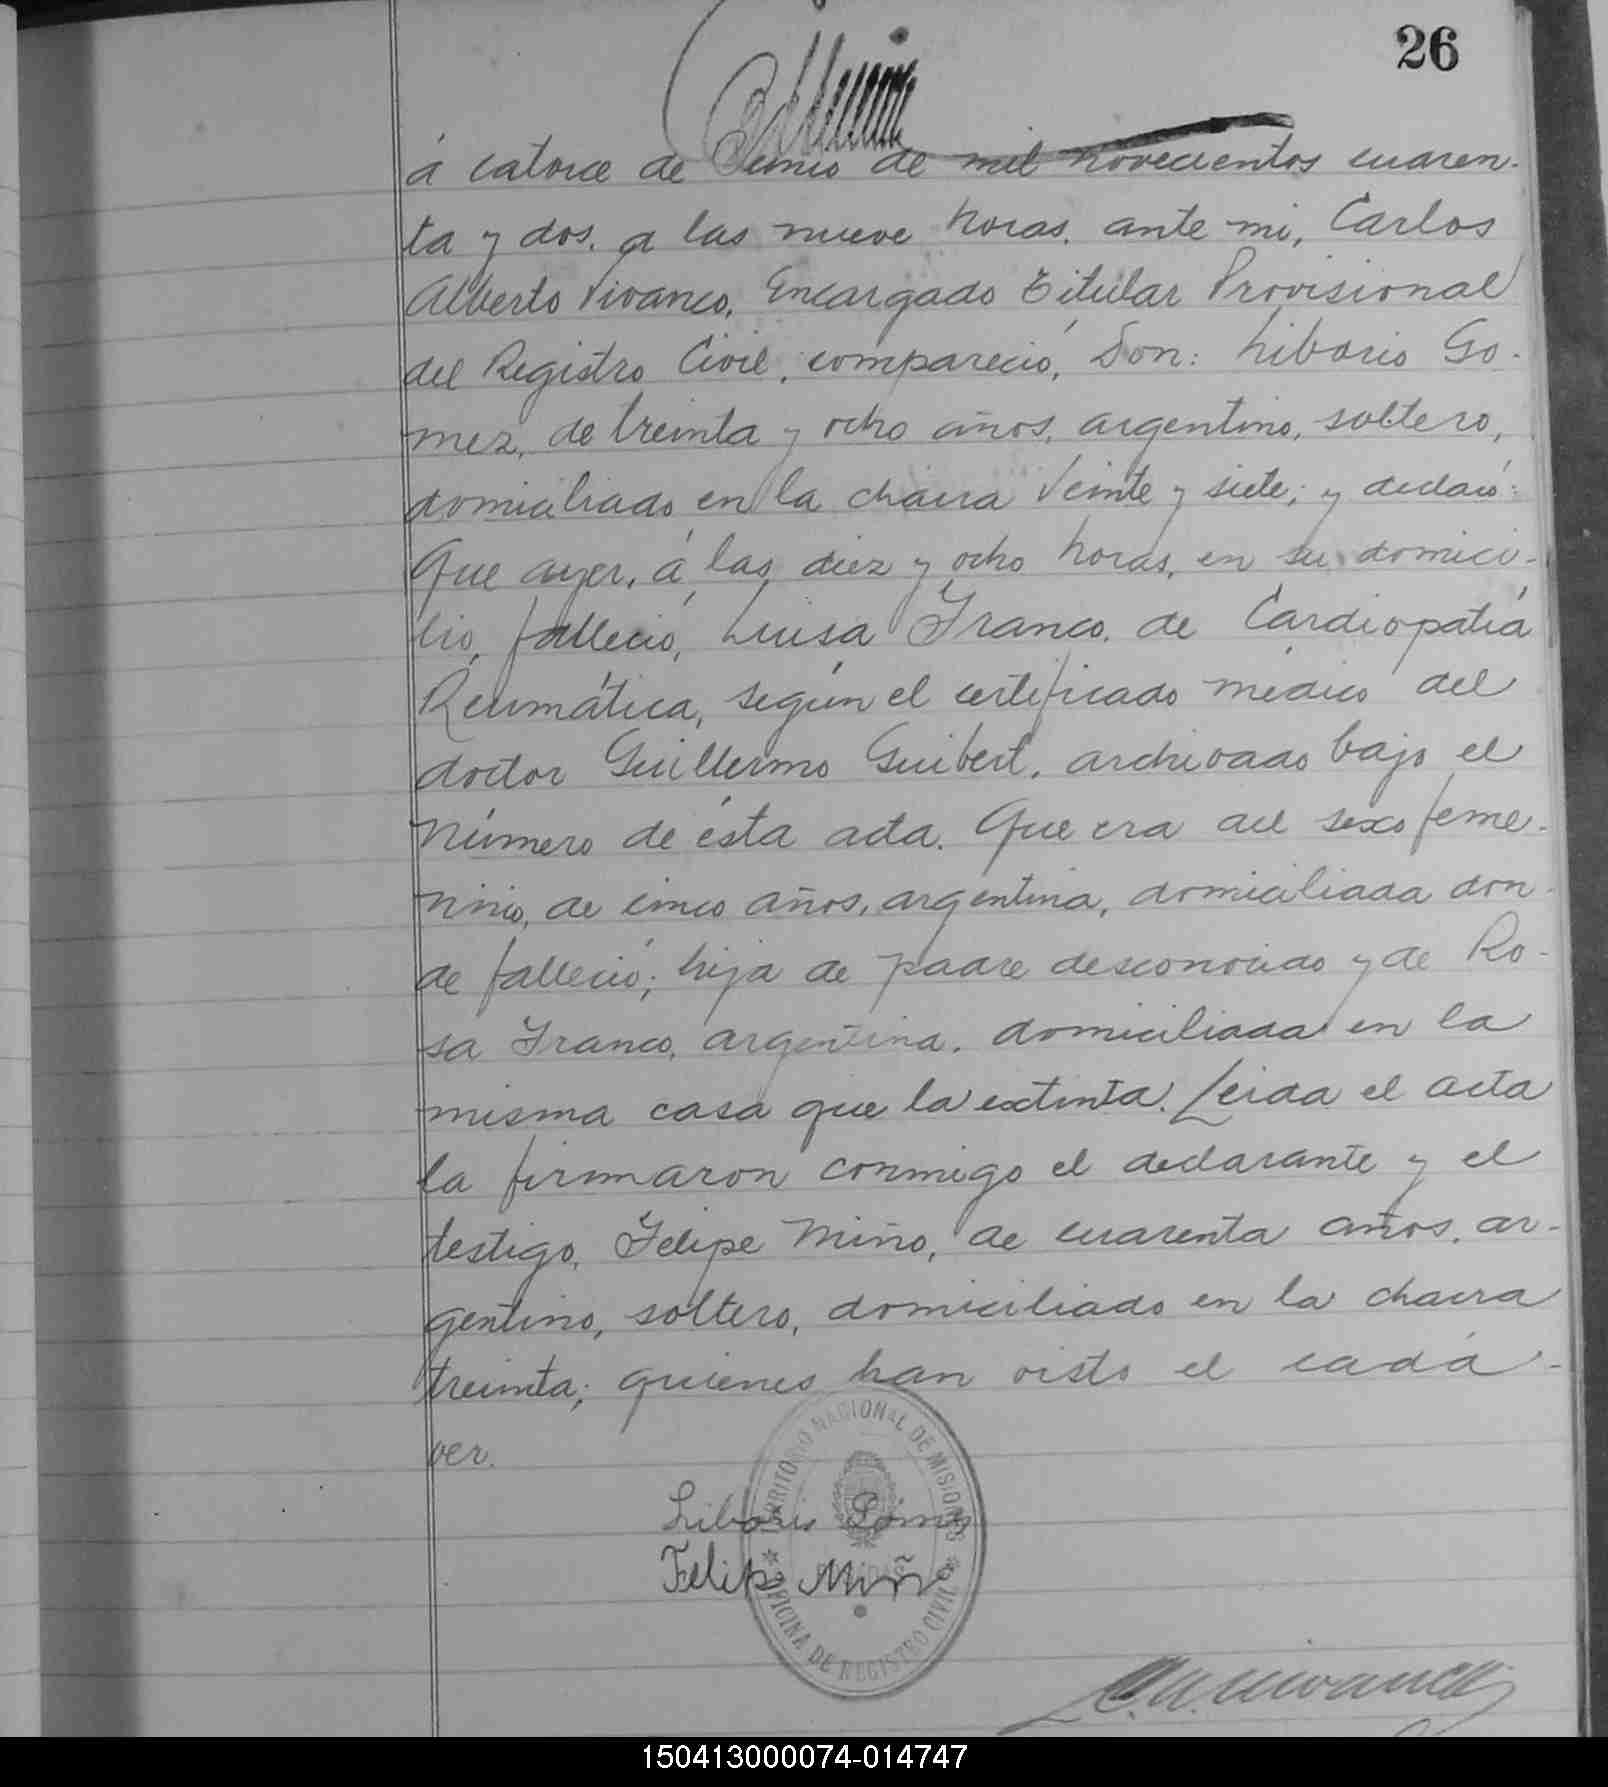 26
á catorce de Junio de mil novecientos cuaren-
ta y dos. a las nueve horas. ante mi, Carlos
Alberto Vivanco, Encargado Titular Provisional
del Registro Civil, compareció, Don: Liborio Go-
mez, de treinta y ocho años, argentino, soltero,
domiciliado en la chacra veinte y siete; y declaró:
Que ayer, á las diez y ocho horas, en su domici-
lio, falleció, Luisa Franco, de Cardiopatía
Reumática, según el certificado médico del
doctor Guillermo Guibert, archivado bajo el
número de ésta acta. Que era del sexo feme-
nino, de cinco años, argentina, domiciliada don-
de falleció; hija de padre desconocido y de Ro-
sa Franco, argentina, domiciliada en la
misma casa que la extinta. Leida el acta
la firmaron conmigo el declarante y el
testigo, Felipe Miño, de cuarenta años, ar-
gentino, soltero, domiciliado en la chacra
treinta; quienes han visto el cadá-
ver.
TERRITORIO NACIONAL DE MISIONES
Liborio Gomez
Felipe Miño
OFICINA DE REGISTRO CIVIL
C. A. Vivanco
150413000074-014747